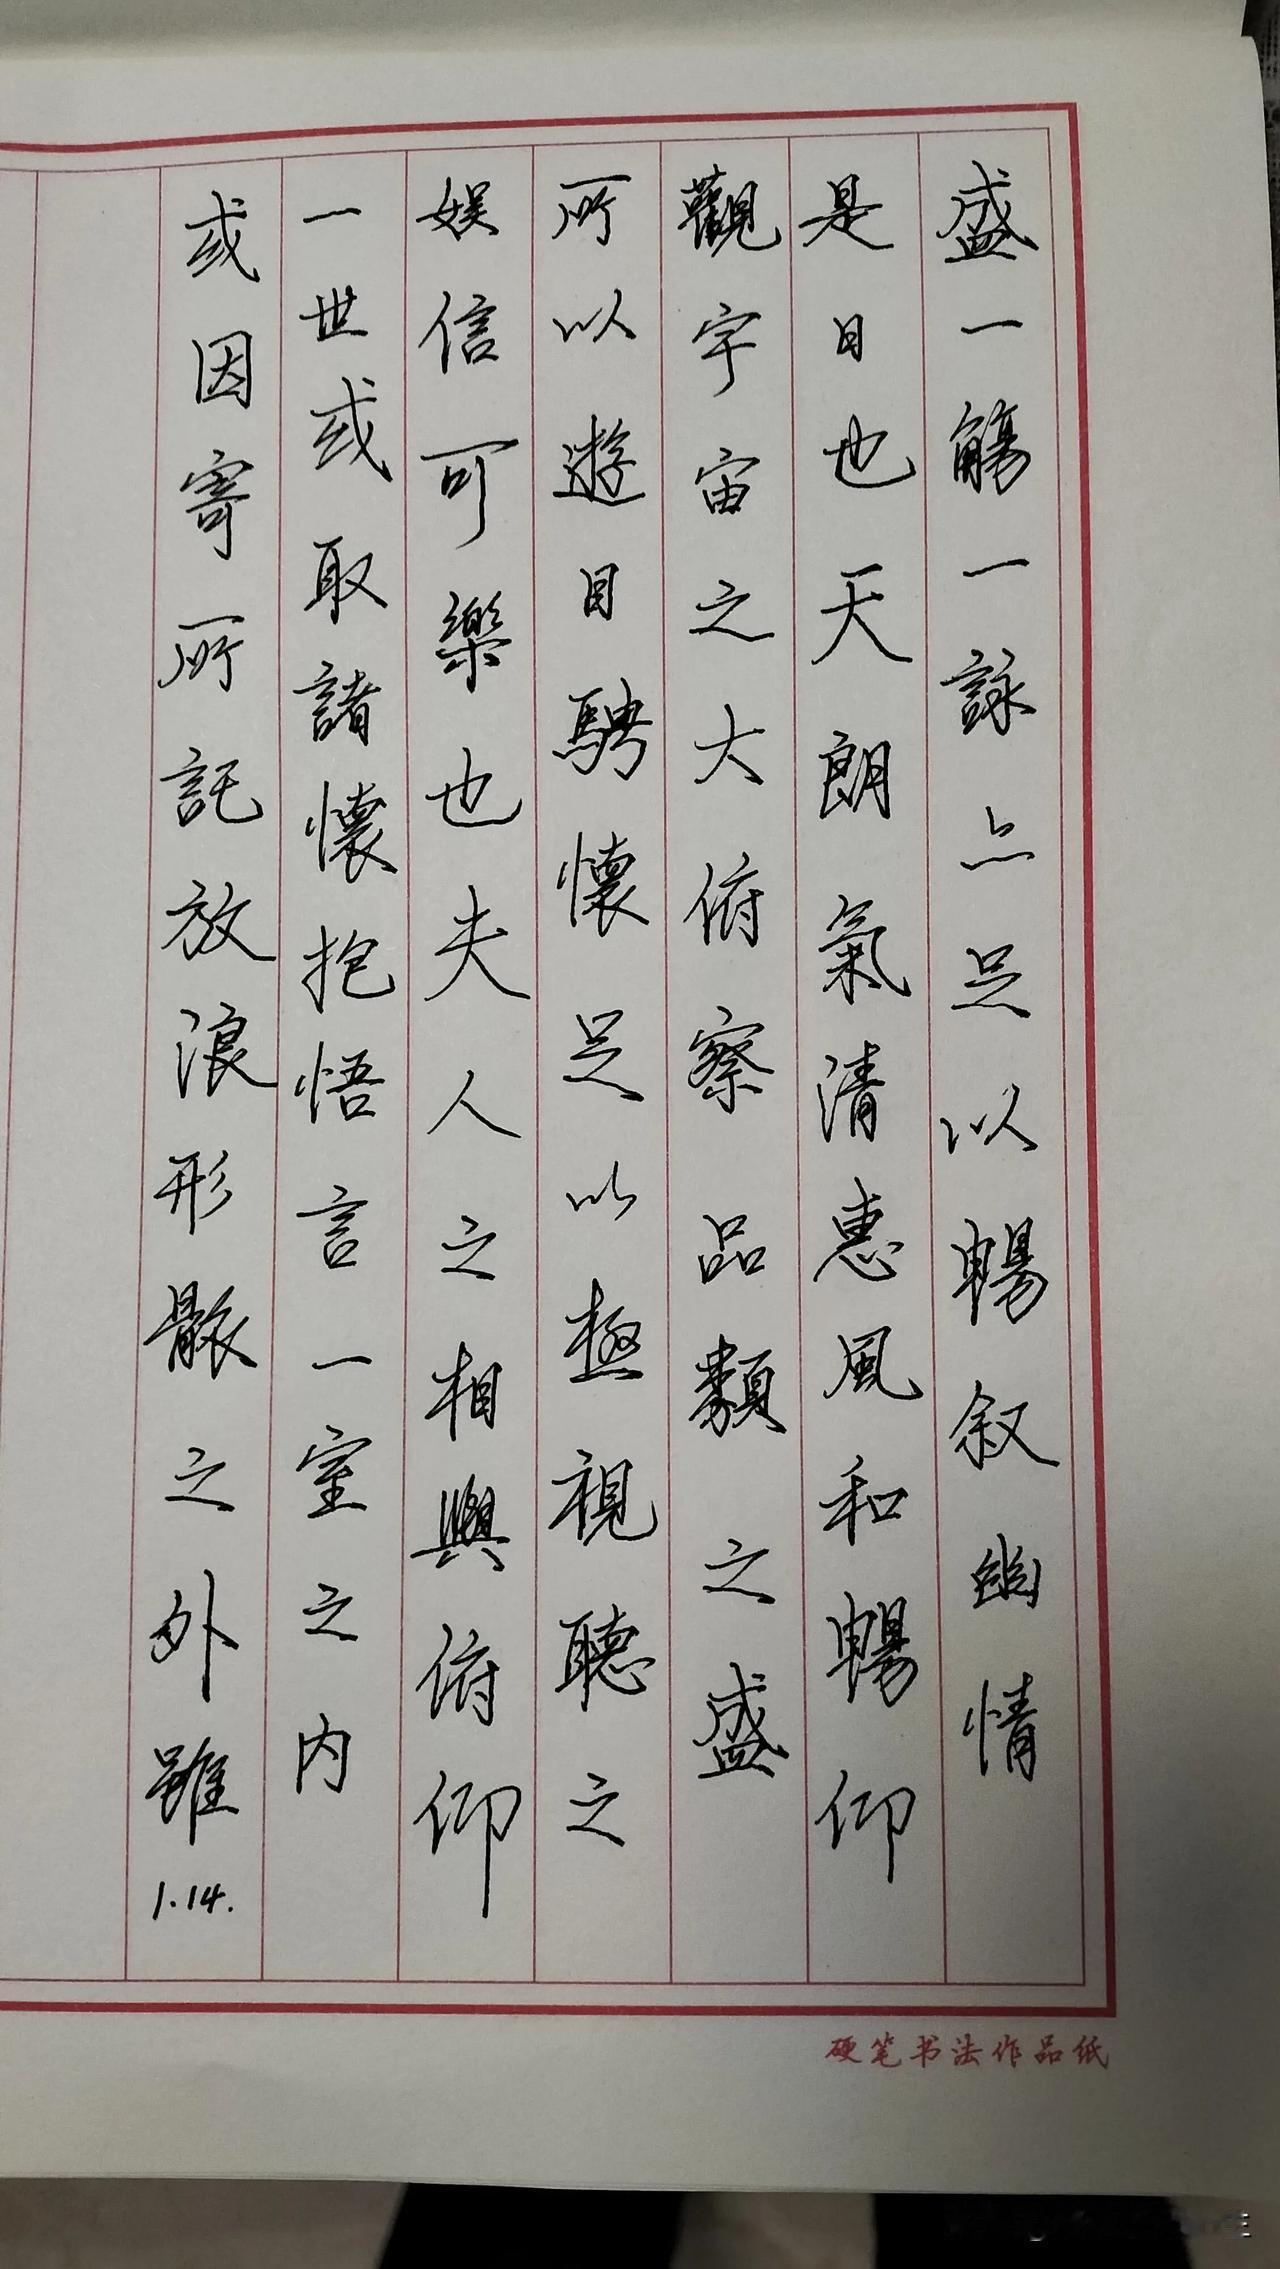 盛一觴一詠亦足以暢叙幽情
是日也天朗氣清惠風和暢仰
觀宇宙之大俯察品類之盛
所以遊目騁懷足以極視聽之
娱信可樂也夫人之相與俯仰
一世或取諸懷抱悟言一室之内
或因寄所託放浪形骸之外雖
1.14.
硬笔书法作品纸